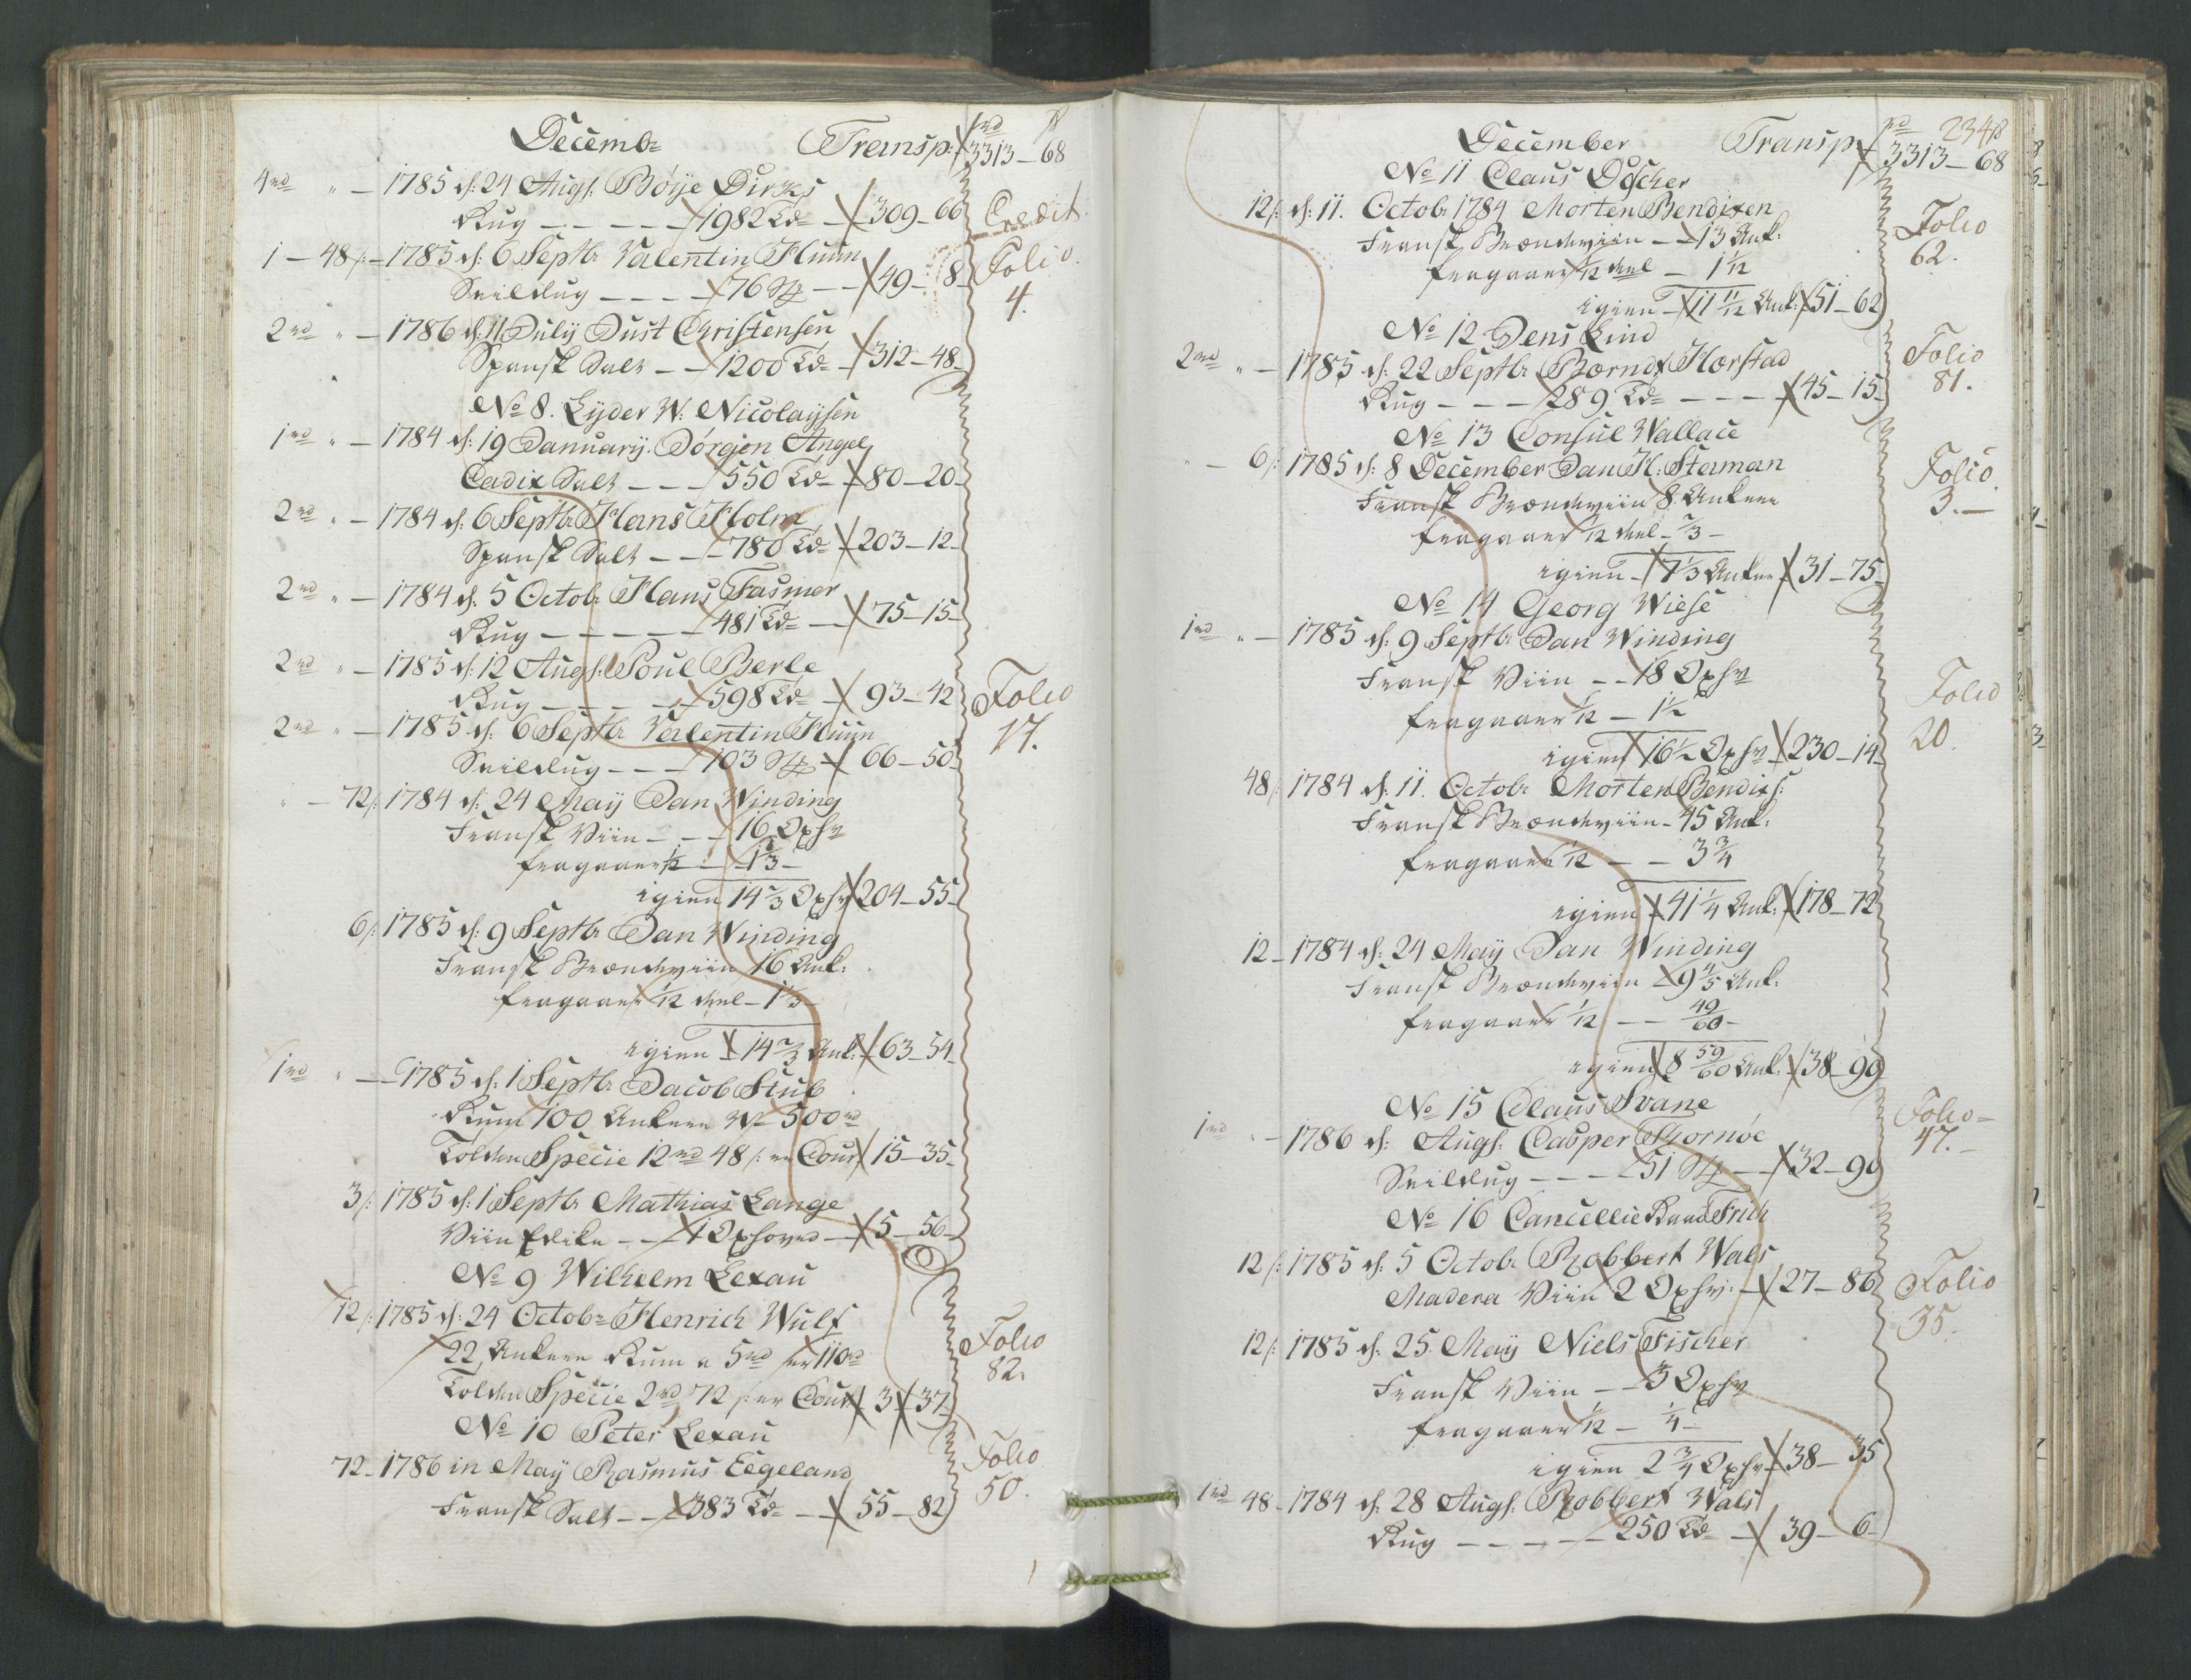 Decembr Transp: rd ß
3313 - 68
4rd " - 1785 d: 24 Augs: Böije Dirks
Rug - - - - 1982 Td - 309 - 66 Credit
1 - 48 ß - 1785 d: 6 Septbr Valentin Fluun Folio
Seildug - - - - 76 St - - 49 - 8 4.
2rd " - 1786 d: 11 July Just Christensen
Spansk Salt - - 1200 Td - 312 - 48
No 8. Eyder W. Nicolaysen
1rd " - 1784 d: 19 January Jörgen Angel
Cadix Salt - - - 550 Td - 80 - 20
2rd " - 1784 d: 6 Septbr Hans Holm
Spansk Salt - - - 780 Td - 203 - 12
2rd " - 1784 d: 5 Octobr Hans Fasmer
Rug - - - - - 481 Td - 75 - 15
2rd " - 1785 d: 12 Augs: Poul Berle
Rug - - - - 598 Td - 93 - 42 Folio
2rd " - 1785 d: 6 Septbr Valentin Fluun 17.
Seildug - - - 103 St - 66 - 50
" - 72 ß 1784 d: 24 May Jan Winding
Fransk Viin - - - 16 Oxhv
fragaaer 1/12 - 1 1/3 -
igien 14 2/3 Oxhv 204 - 55
6 ß: 1785 d: 9 Septbr Jan Winding
Fransk Brændeviin 16 Ank:
fragaaer 1/12 deel - 1 1/3
igien - 14 2/3 Ank: 63 - 54
1rd " - 1785 d: 1 Septbr Jacob Stub
Rum 100 Ankere 500rd
Tolden Specie 12rd 48 ß: er Cour 15 - 35
3 ß: 1785 d: 1 Septbr Mathias Lange
Viin Edike - - 1 Oxhoved - 5 - 56
No 9 Wilhelm Lexau
12 ß: 1785 d: 24 Octobr Henrich Wulf Folio
22 Ankere Rum a 5rd er 110rd 82.
Tolden Specie 2rd 72 ß: er Cour 3 - 37
No 10 Peter Lexau Folio
72 - 1786 in May Rasmus Eegeland 50.
Fransk Salt - - 383 Td - - 55 - 82
December Transp rd 234 ß
3313 - 68
No 11 Claus Döscher
12 ß: d: 11. Octobr 1784 Morten Bendixen Folio
Fransk Brændeviin - 13 Ank: 62.
fragaaer 1/12 deel - 1 1/12
igien - 11 11/12 Ank: 51 - 62
No 12 Jens Lind Folio
2rd " - 1785 d: 22 Septbr Børndt Horstad 81.
Rug - - - 289 Td - - - 45 - 15
No 13 Consul Wallace
" - 6 ß: 1785 d: 8 December Jan H: Staman Folio
Fransk Brændeviin 8 Ankere 3. -
fragaaer 1/12 deel - 2/3 -
igien - 7 1/3 Ankere 31 - 75
No 14 Georg Wiese
1rd " - 1785 d: 9 Septbr Jan Winding
Fransk Viin - - 18 Oxhv Folio
fragaaer 1/12 - 1 1/2 20.
igien 16 1/2 Oxhv 230 - 14
48 ß 1784 d: 11. Octobr Morten Bendixs:
Fransk Brændeviin - 45 Ank:
fragaaer 1/12 - - 3 3/4
igien 41 1/4 Ank: 178 - 72
12 - 1784 d: 24 May Jan Winding
Fransk Brændeviin 9 4/5 Ank:
fragaaer 1/12 - - 49/60 -
igien 8 59/60 Ank: 38 - 90
No 15 Claus Svane Folio -
1rd " - 1786 d: Augs: Casper Thornöe 47. -
Seildug - - - - 51 St - 32 - 90
No 16 Cancellie Raad Frich
12 ß: 1785 d: 5 Octobr Robbert Wals Folio
Madera Viin 2 Oxhv: - 27 - 86 35.
12 ß: 1785 d: 25 May Niels Fischer
Fransk Viin - - 3 Oxhv
fragaaer 1/12 - 1/4 -
igien 2 3/4 Oxhv 38 - 35
1rd 48 - 1784 d: 28 Augs: Robbert Wals
Rug - - - - 250 Td - 39 - 6